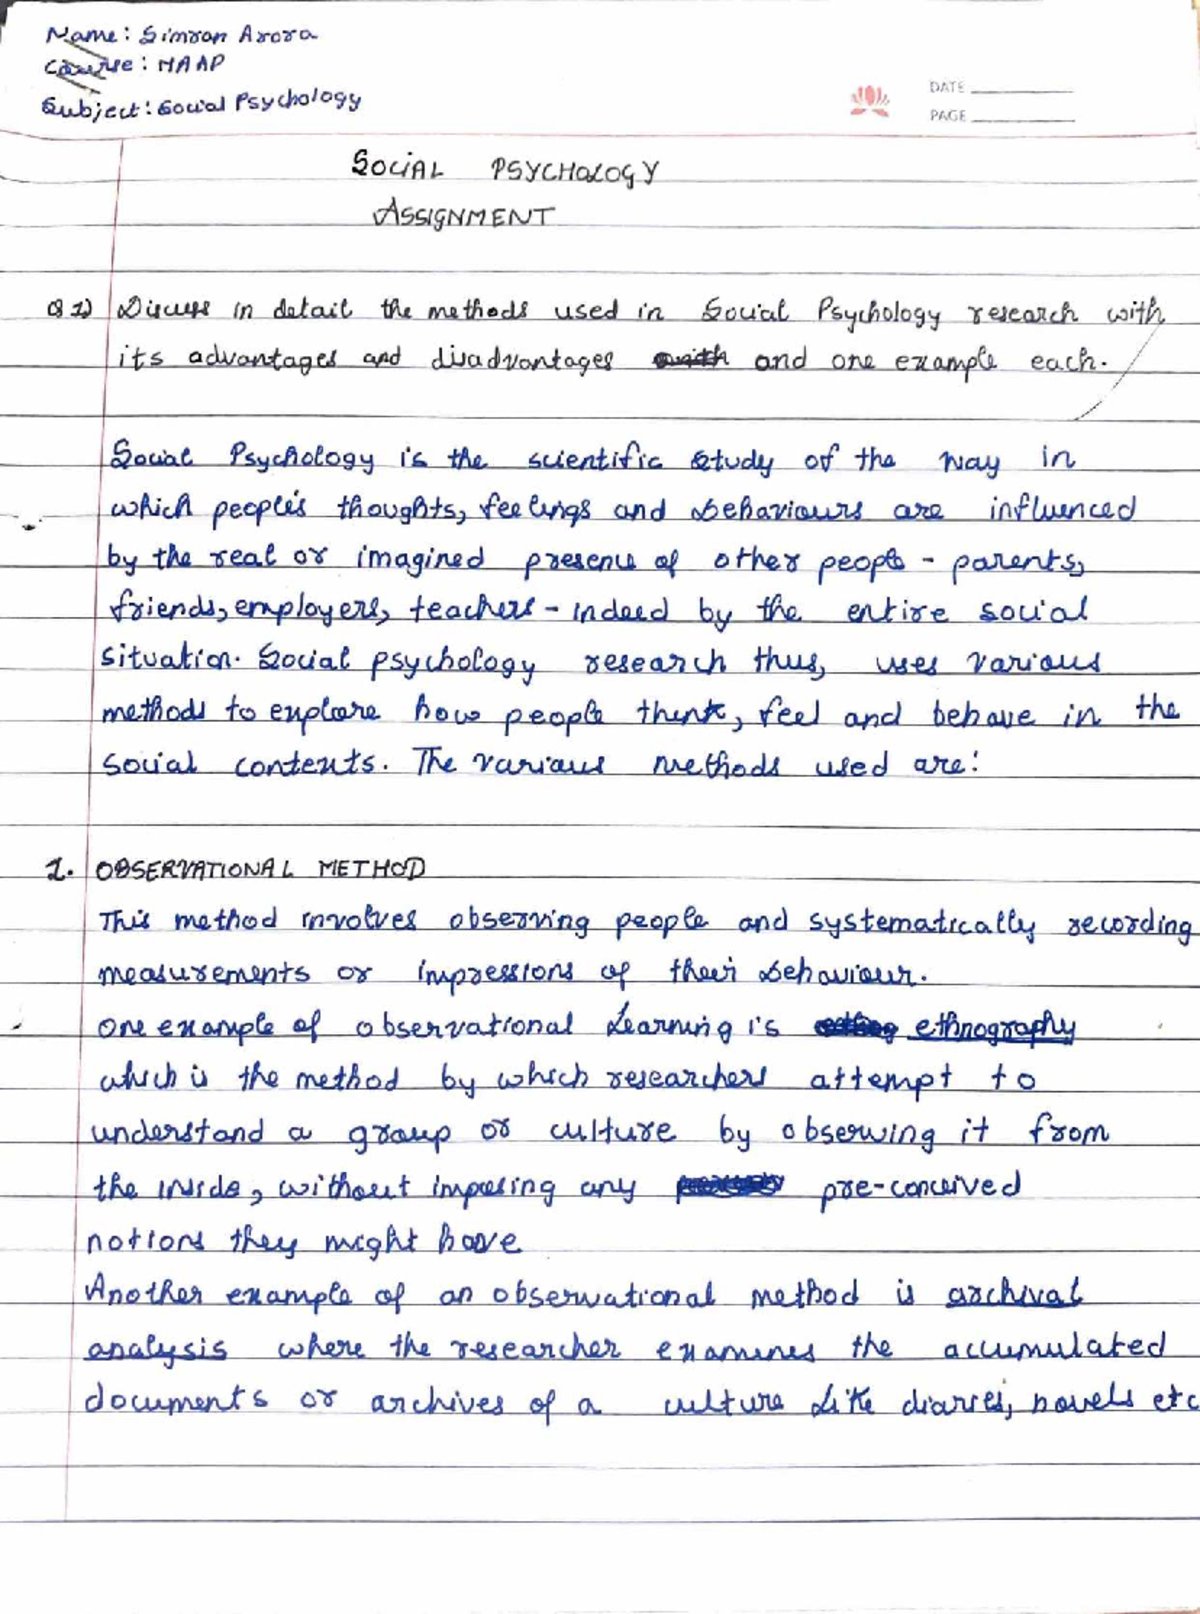 Name: Simran Arora
Course: MAAP
Subject: Social Psychology
DATE
PAGE
SOCIAL PSYCHOLOGY
ASSIGNMENT
Q1) Discuss in detail the methods used in Social Psychology research with
its advantages and disadvantages with and one example each.
Social Psychology is the scientific study of the way in
which people's thoughts, feelings and behaviours are influenced
by the real or imagined presence of other people - parents,
friends, employers, teachers - indeed by the entire social
situation. Social psychology research thus, uses various
methods to explore how people think, feel and behave in the
social contexts. The various methods used are:
1. OBSERVATIONAL METHOD
This method involves observing people and systematically recording
measurements or impressions of their behaviour.
One example of observational learning is ethnography
which is the method by which researchers attempt to
understand a group or culture by observing it from
the inside, without imposing any pre-conceived
notions they might have
Another example of an observational method is archival
analysis where the researcher examines the accumulated
documents or archives of a culture like diaries, novels etc